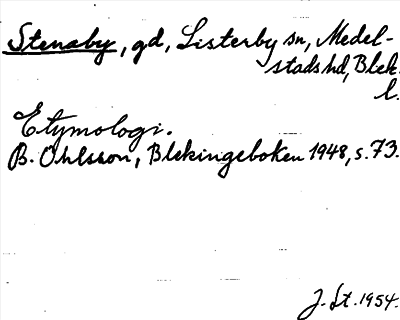 Stenaby, gd, Listerby sn, Medel-
stads hd, Blek.
l.
Etymologi.
B. Ohlsson, Blekingeboken 1948, s. 73.
J. St. 1954.